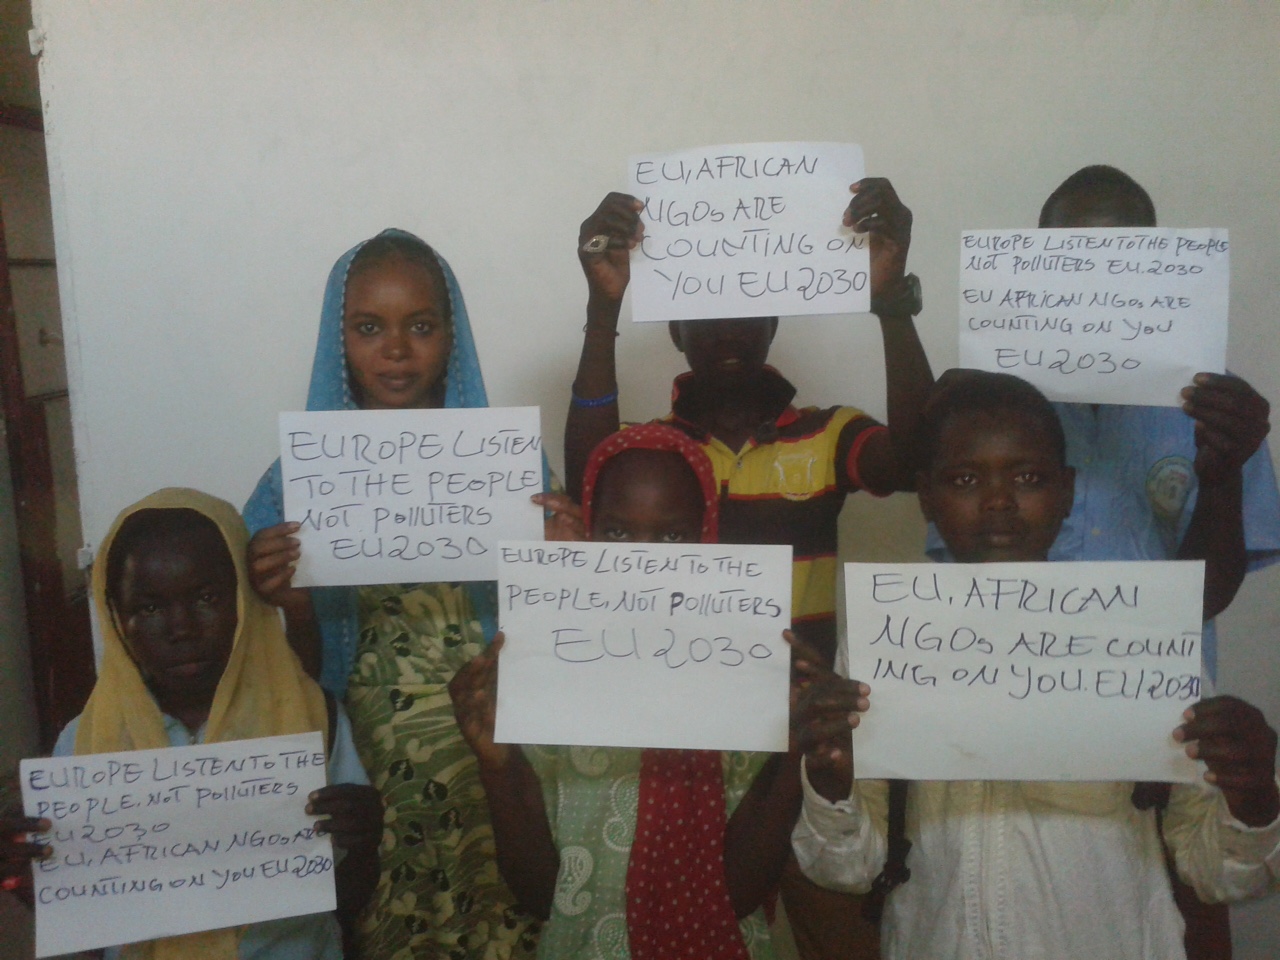 EU, AFRICAN
NGOs ARE
COUNTING ON
YOU EU 2030
EUROPE LISTEN TO THE PEOPLE
NOT POLLUTERS EU.2030
EU AFRICAN NGOs ARE
COUNTING ON YOU
EU 2030
EUROPE LISTEN
TO THE PEOPLE
NOT POLLUTERS
EU 2030
EUROPE LISTEN TO THE
PEOPLE, NOT POLLUTERS
EU 2030
EU, AFRICAN
NGOs ARE COUNT
ING ON YOU. EU 2030
EUROPE LISTEN TO THE
PEOPLE, NOT POLLUTERS
EU 2030
EU, AFRICAN NGOs ARE
COUNTING ON YOU EU 2030